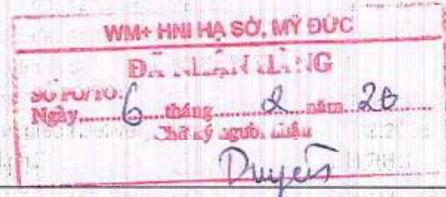 WM+ HNI HẠ SỞ, MỸ ĐỨC
ĐÃ NHẬN HÀNG
SỐ PO/TO:
Ngày 6 tháng 2 năm 20
Chữ ký người nhận
Duyên